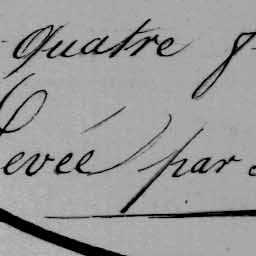 quatre
Levée par